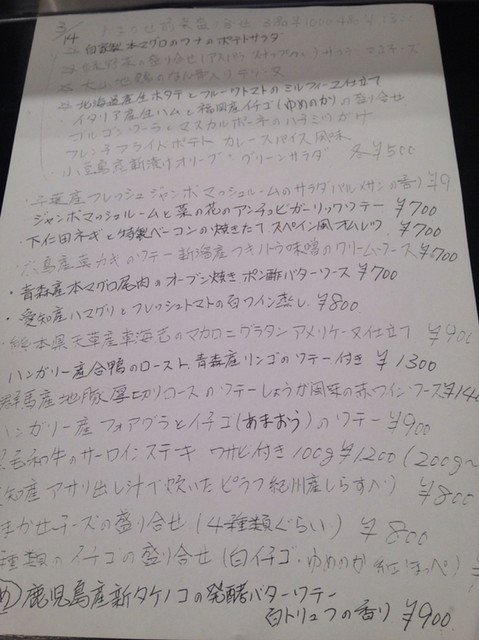 3/14 おまかせ前菜盛り合せ
自家製本マグロのツナのポテトサラダ
北海道産生ホタテとフルーツトマトのミルフィーユ仕立て
・イタリア産生ハムと福岡産イチゴ(ゆめのか)の盛り合せ
ゴルゴンゾーラとマスカルポーネのハチミツがけ
フレンチフライドポテト カレースパイス風味
小豆島産新漬けオリーブ・グリーンサラダ 各¥500
・千葉産フレッシュジャンボマッシュルームのサラダパルメザンの香り¥9
ジャンボマッシュルームと菜の花のアンチョビガーリックソテー ¥700
・下仁田ネギと特製ベーコンの焼きたてスペイン風オムレツ ¥700
・広島産真カキのソテー新潟産フキノトウ味噌のクリームソース¥700
・青森産本マグロ尾肉のオーブン焼きポン酢バターソース ¥700
・愛知産ハマグリとフレッシュトマトの白ワイン蒸し ¥800
・熊本県天草産車海老のマカロニグラタンアメリケーヌ仕立て ¥900
ハンガリー産合鴨のロースト青森産リンゴのソテー付き ¥1300
群馬産地豚厚切りロースのソテーしょうが風味の赤ワインソース¥140
ハンガリー産フォアグラとイチゴ(あまおう)のソテー ¥900
毛和牛のサーロインステーキ ワサビ付き 100g¥1200(200g〜
知産アサリ出し汁で炊いたピラフ(紀州産しらす入り) ¥800
まかせチーズの盛り合せ(4種類ぐらい) ¥800
種類のイチゴの盛り合せ(白イチゴ・ゆめのか・紅ほっぺ) ¥
鹿児島産新タケノコの発酵バターソテー
白トリュフの香り ¥900